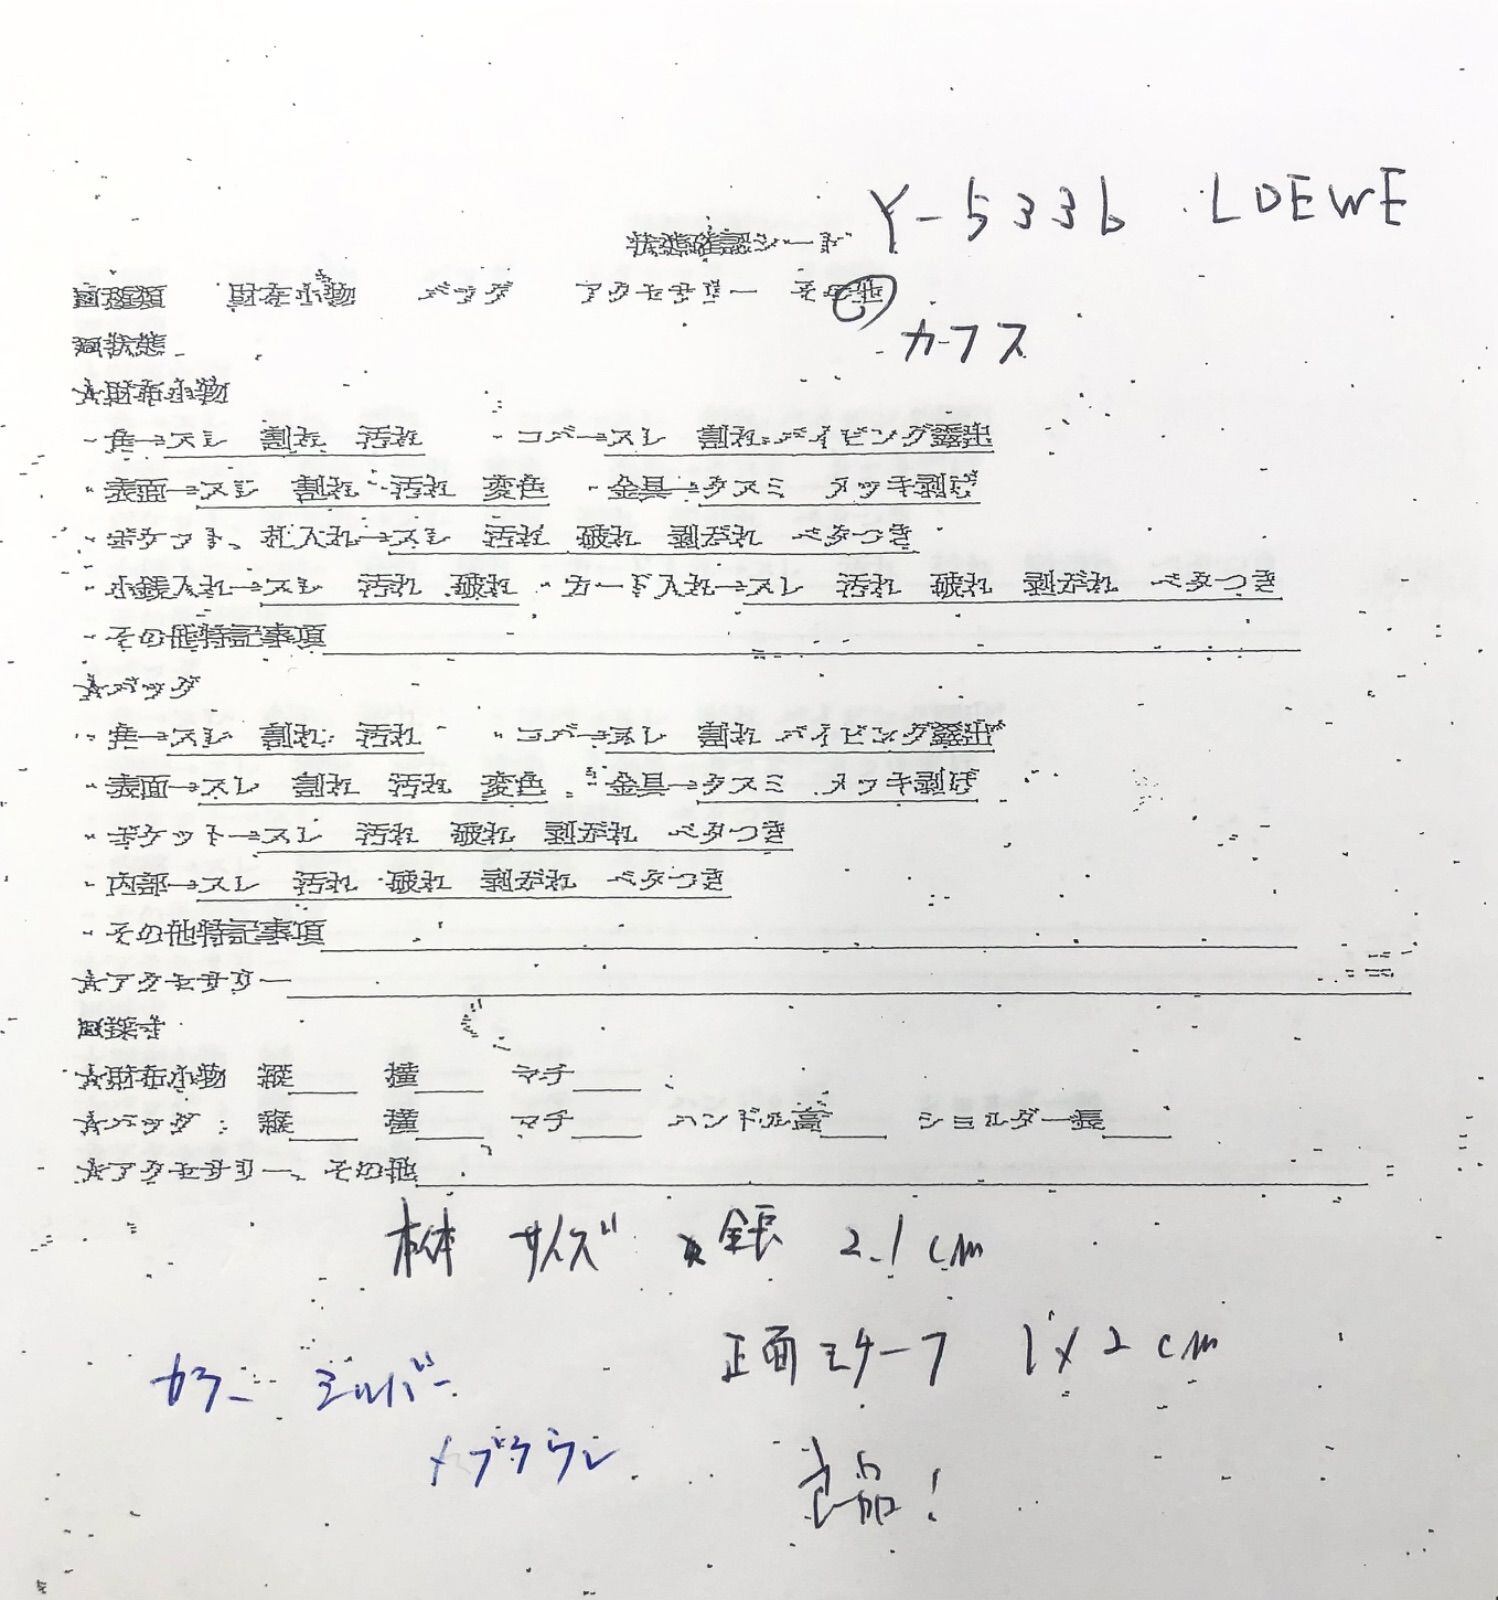 Y-5336 LOEWE
状態確認シート
■種類 財布小物 バッグ アクセサリー その他
カフス
■状態
★財布小物
・角→スレ 割れ 汚れ ・コバ→スレ 割れ パイピング露出
・表面→スレ 割れ 汚れ 変色 ・金具→クスミ メッキ剥げ
・ポケット、札入れ→スレ 汚れ 破れ 剥がれ ベタつき
・小銭入れ→スレ 汚れ 破れ ・カード入れ→スレ 汚れ 破れ 剥がれ ベタつき
・その他特記事項
★バッグ
・角→スレ 割れ 汚れ ・コバ→スレ 割れ パイピング露出
・表面→スレ 割れ 汚れ 変色 ・金具→クスミ メッキ剥げ
・ポケット→スレ 汚れ 破れ 剥がれ ベタつき
・内部→スレ 汚れ 破れ 剥がれ ベタつき
・その他特記事項
★アクセサリー
■採寸
★財布小物 縦 横 マチ
★バッグ 縦 横 マチ ハンドル高 ショルダー長
★アクセサリー、その他
本体 サイズ 全長 2.1cm
正面モチーフ 1×2cm
カラー シルバー
×ブラウン
良品!